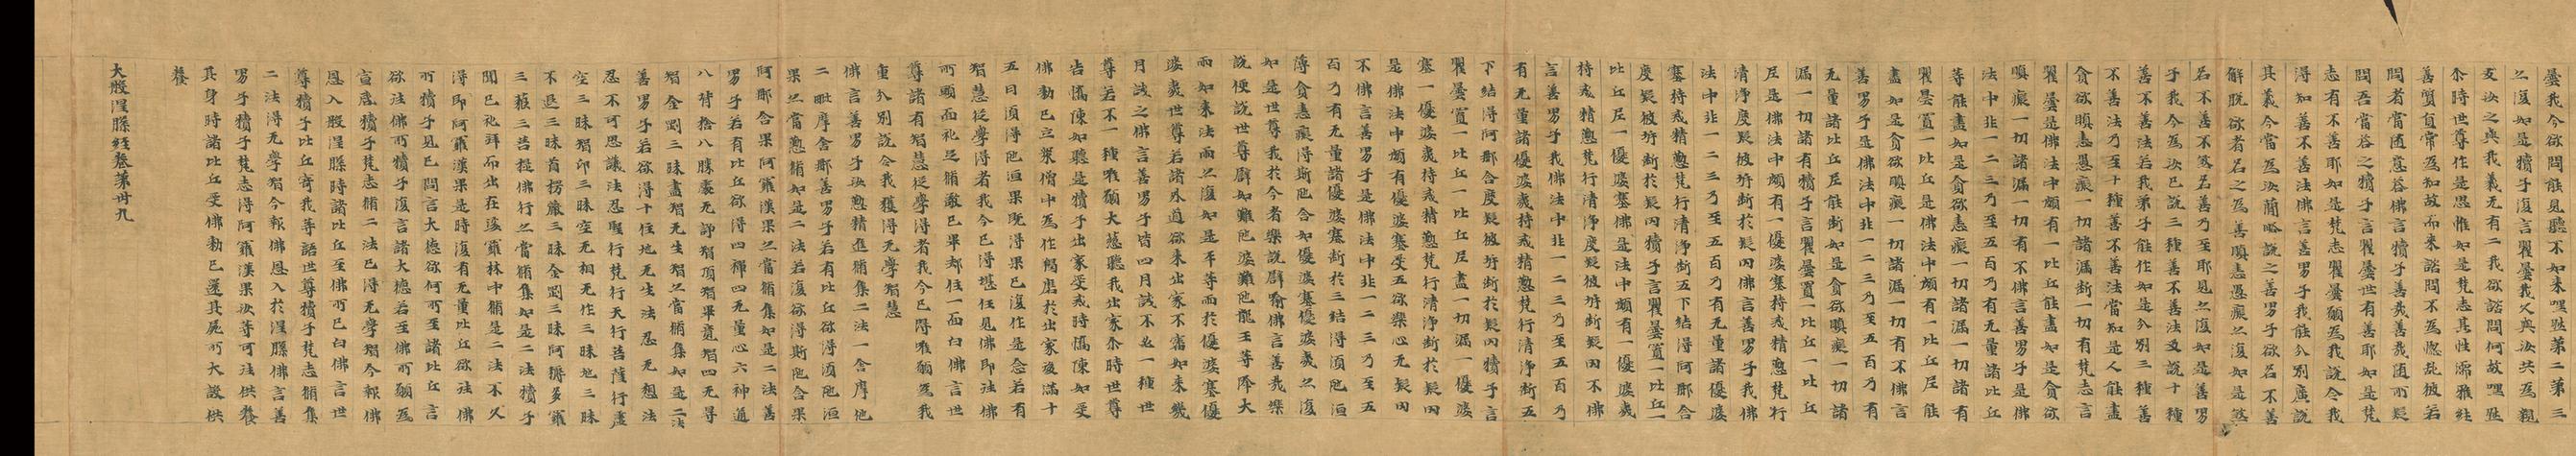 曇我今欲問能見聽不如來嘿然第二第三
亦復如是犢子復言瞿曇我久與汝共為親
友汝之與我義无有二我欲諮問何故嘿然
尒時世尊作是思惟如是梵志其性濡雅純
善質直常為知故而來諮問不為惱亂彼若
問者當隨意荅佛言犢子善哉善哉随所疑
問吾當荅之犢子言瞿曇世有善耶如是梵
志有不善耶如是梵志瞿曇願為我說令我
得知善不善法佛言善男子我能分別廣說
其義今當為汝蕳略說之善男子欲名不善
解脫欲者名之為善瞋恚愚癡亦復如是煞
名不善不煞名善乃至耶見亦復如是善男
子我今為汝已說三種善不善法及說十種
善不善法若我弟子能作如是分別三種善
不善法乃至十種善不善法當知是人能盡
貪欲瞋恚愚癡一切諸漏斷一切有梵志言
瞿曇是佛法中頗有一比丘能盡如是貪欲
瞋癡一切諸漏一切有不佛言善男子是佛
法中非一二三乃至五百乃有无量諸比丘
等能盡如是貪欲恚癡一切諸漏一切諸有
瞿曇置一比丘是佛法中頗有一比丘尼能
盡如是貪欲瞋癡一切諸漏一切有不佛言
善男子是佛法中非一二三乃至五百乃有
无量諸比丘尼能斷如是貪欲瞋癡一切諸
漏一切諸有犢子言瞿曇置一比丘一比丘
尼是佛法中頗有一優婆塞持戒精懃梵行
清淨度疑彼岸斷於疑網佛言善男子我佛
法中非一二三乃至五百乃有无量諸優婆
塞持戒精懃梵行清淨斷五下結得阿那含
度疑彼岸斷於疑网犢子言瞿曇置一比丘一
比丘尼一優婆塞佛是法中頗有一優婆夷
持戒精懃梵行清淨度疑彼岸斷疑网不佛
言善男子我佛法中非一二三乃至五百乃
有无量諸優婆夷持戒精懃梵行清淨斷五
下結得阿那含度疑彼岸斷於疑网犢子言
瞿曇置一比丘一比丘尼盡一切漏一優婆
塞一優婆夷持戒精懃梵行清淨斷於疑网
是佛法中頗有優婆塞受五欲樂心无疑网
不佛言善男子是佛法中非一二三乃至五
百乃有无量諸優婆塞斷於三結得須陁洹
薄貪恚癡得斯陁含如優婆塞優婆夷亦復
如是世尊我於今者樂說譬喻佛言善哉樂
說便說世尊譬如難陁婆難陁龍王等降大
雨如來法雨亦復如是平等雨於優婆塞優
婆夷世尊若諸外道欲來出家不審如來幾
月試之佛言善男子皆四月試不必一種世
尊若不一種唯願大慈聽我出家尒時世尊
告憍陳如聽是犢子出家受戒時憍陳如受
佛勑已立衆僧中為作羯磨於出家後滿十
五日須得陁洹果既得果已復作是念若有
智慧從學得者我今已得堪任見佛即往佛
所頭面礼足脩敬已畢却住一面白佛言世
尊諸有智慧從學得者我今已得唯願為我
重分別說令我獲得无學智慧
佛言善男子汝懃精進脩集二法一舍摩他
二毗摩舍那善男子若有比丘欲得須陁洹
果亦當懃脩如是二法若復欲得斯陁含果
阿那含果阿羅漢果亦當脩集如是二法善
男子若有比丘欲得四禪四无量心六神通
八背捨八勝處无諍智頂智畢竟智四无㝵
智金剛三昧盡智无生智亦當脩集如是二法
善男子若欲得十住地无生法忍无想法
忍不可思議法忍聖行梵行天行菩薩行虛
空三昧智印三昧空无相无作三昧地三昧
不退三昧首楞嚴三昧金剛三昧阿耨多羅
三藐三菩提佛行亦當脩集如是二法犢子
聞已礼拜而出在娑羅林中脩是二法不久
得即阿羅漢果是時復有无量比丘欲往佛
所犢子見已問言大德欲何所至諸比丘言
欲往佛所犢子復言諸大德若至佛所願為
宣啓犢子梵志脩二法已得无學智今報佛
恩入般涅槃時諸比丘至佛所已白佛言世
尊犢子比丘寄我等語世尊犢子梵志脩集
二法得无學智今報佛恩入於涅槃佛言善
男子犢子梵志得阿羅漢果汝等可往供養
其身時諸比丘受佛勑已還其屍所大設供
養
大般涅槃経卷第卅九